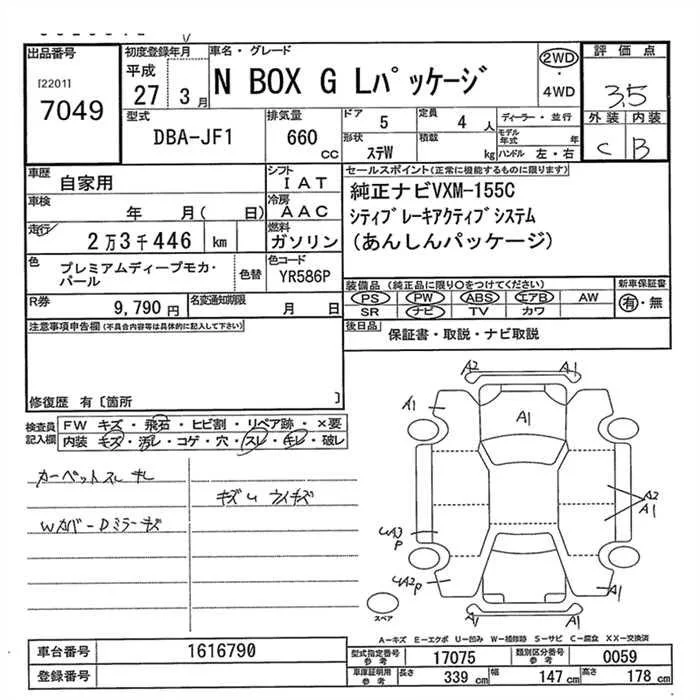 出品番号
[2201]
7049
初度登録年月
平成
27 3月
車名・グレード
N BOX G Lパッケージ
2WD
・
4WD
評価点
3.5
外装 内装
C B
型式
DBA-JF1
排気量
660
cc
ドア
5
定員
4 人
形状
ステW
積載
kg
ディーラー・並行
モデル年式 年
ハンドル 左・右
車歴
自家用
シフト
IAT
車検
年 月( 日)
冷房
AAC
走行
2万3千446 km
燃料
ガソリン
色
プレミアムディープモカ・パール
色替
色コード
YR586P
R券
9,790 円
名変通知期限
月 日
セールスポイント(正常に機能するものに限ります)
純正ナビVXM-155C
シティブレーキアクティブシステム
(あんしんパッケージ)
装備品(純正品に限り○をつけてください)
PS PW ABS エアB AW
SR ナビ TV カワ
新車保証書
有・無
後日品
保証書・取説・ナビ取説
注意事項申告欄(不具合内容等は具体的に記入して下さい)
修復歴 有〔箇所 〕
検査員記入欄
FW キズ・飛石・ヒビ割・リペア跡・×要
内装 キズ・汚レ・コゲ・穴・スレ・キレ・破レ
カーペットスレ キレ
WカバーDミラーキズ
キズU ウスキズ
A2
A1
A1
A1
A2
A1
UA3
P
UA2P
A1
A1
A1
スペア
A-キズ E-エクボ U-凹み W-補修跡 S-サビ C-腐食 XX-交換済
車台番号
1616790
登録番号
型式指定番号
参考
17075
類別区分番号
参考
0059
車庫証明用
参考
長さ
339 cm
幅
147 cm
高さ
178 cm